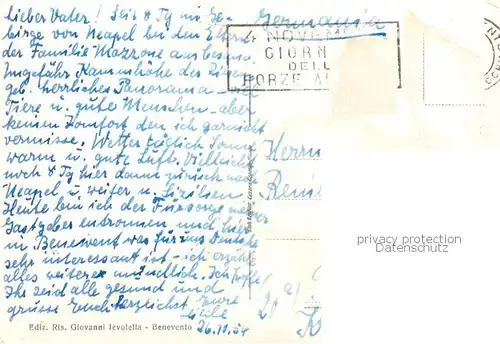 Lieber Vater! Seit 8 Tg im Ge-
birge von Neapel bei den Eltern
der Familie Mazzone aus
Ungefähr Kammhöhe des
geb. herrliches Panorama -
Tiere u. gute Menschen - aber
keinen Komfort den ich garnicht
vermisse. Wetter täglich Sonne
warm u. gute Luft. Vielleicht
noch 8 Tg hier dann zurück nach
Neapel u. weiter n. Sizilien
Heute bin ich der Fürsorge meiner
Gastgeber entronnen und
in Benevent was für uns Deutsche
sehr interessant ist - ich erzähle
alles weitere mündlich. Ich hoffe
Ihr seid alle gesund und
grüsse Euch herzlichst Eure
26.10.54
Ediz. Ris. Giovanni Ievolella - Benevento
Germania
4 NOVEM
GIORN
DELL
FORZE A
Herrn
privacy protection
Datenschutz